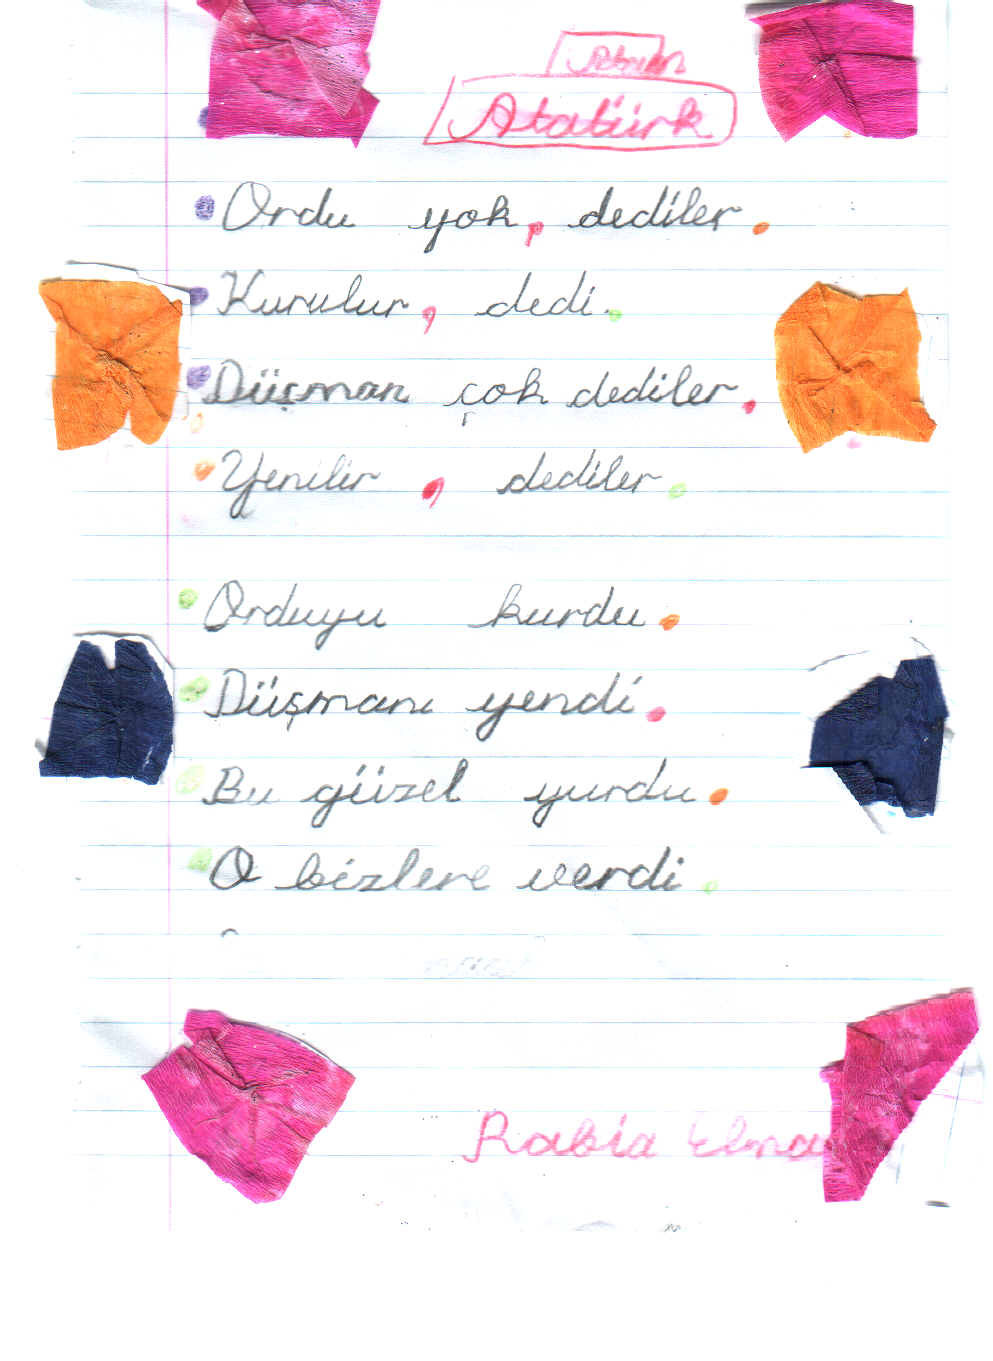 Atatürk
Ordu yok, dediler.
Kurulur, dedi.
Düşman çok dediler.
Yenilir, dediler.
Orduyu kurdu.
Düşmanı yendi.
Bu güzel yurdu.
O bizlere verdi.
Rabia Elma